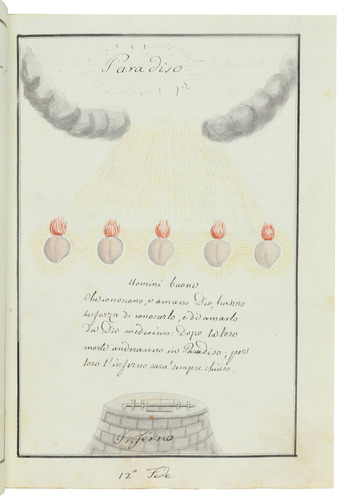 Paradiso
Uomini buoni
che conoscono, e amano Dio, hanno
la forza di conoscerlo, e di amarlo
da Dio medesimo. Dopo la loro
morte anderanno in Paradiso; per
loro l'inferno sarà sempre chiuso.
Inferno
12ª Fede